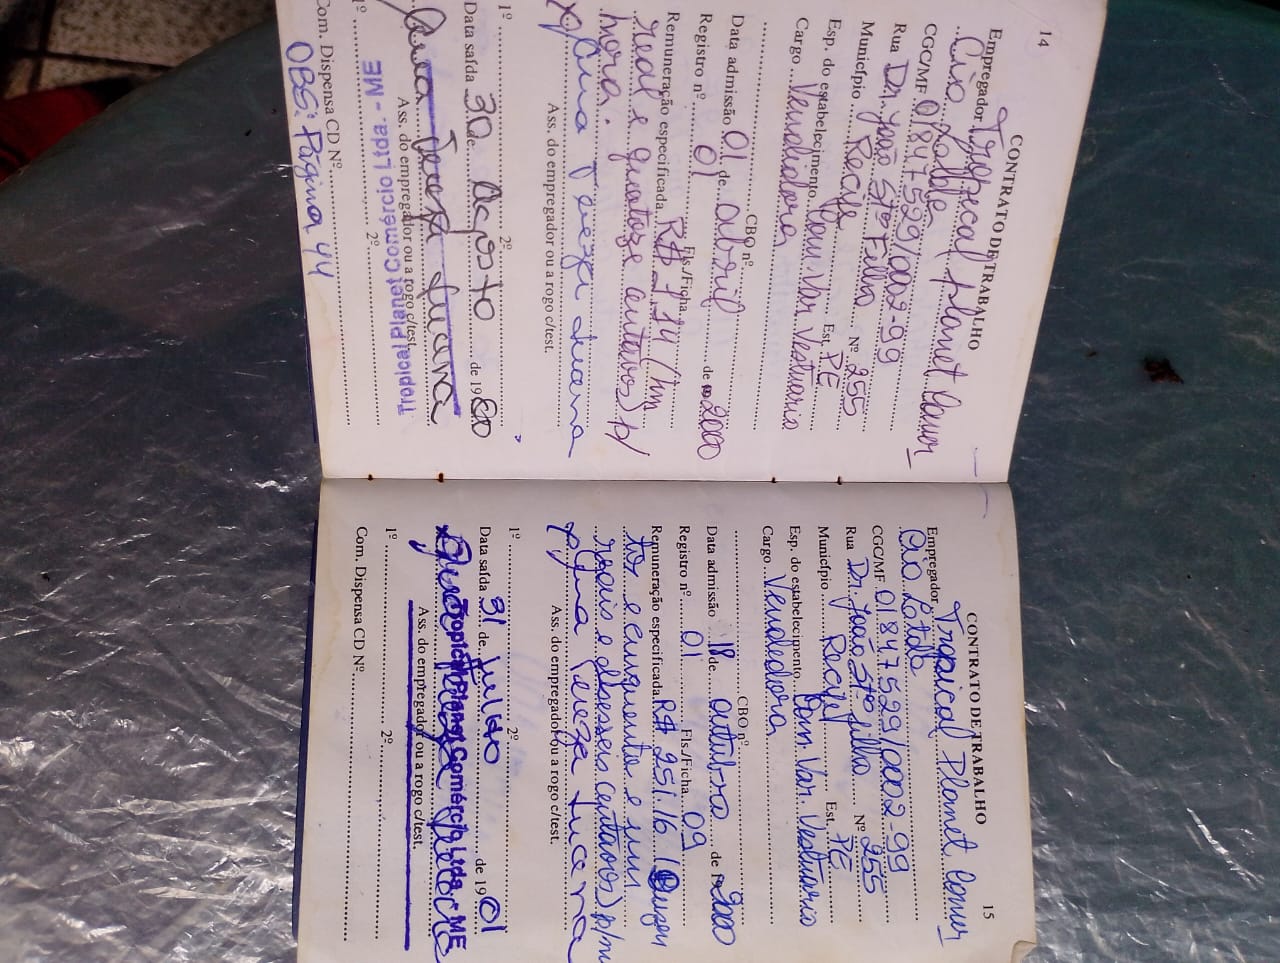 14
CONTRATO DE TRABALHO
Empregador Tropical Planet Comer_
cio Ltda
CGC/MF 01847529/0002-99
Rua Dr. João Stº Filho Nº 255
Município Recife Est. PE
Esp. do estabelecimento Com. Var. Vestuario
Cargo Vendedora
CBO nº
Data admissão 01 de abril de 2000
Registro nº 01 Fls./Ficha
Remuneração especificada R$ 1,14 (hum
real e quatoze centavos) p/
hora.
Ana Tereza Lucena
Ass. do empregador ou a rogo c/test.
1º 2º
Data saída 30 de Agosto de 19 00
Tropical Planet Comércio Ltda - ME
Ana Tereza Lucena
Ass. do empregador ou a rogo c/test.
1º 2º
Com. Dispensa CD Nº
OBS: Página 44
15
CONTRATO DE TRABALHO
Empregador Tropical Planet Comer_
cio Ltda
CGC/MF 01847529/0002-99
Rua Dr. João Stº Filho Nº 255
Município Recife Est. PE
Esp. do estabelecimento Com. Var. Vestuario
Cargo Vendedora
CBO nº
Data admissão 18 de outubro de 2000
Registro nº 01 Fls./Ficha 09
Remuneração especificada R$ 251,16 (Duzen
tos e cinquenta e hum
reais e dezesseis centavos) p/m
Ana Tereza Lucena
Ass. do empregador ou a rogo c/test.
1º 2º
Data saída 31 de Julho de 19 01
Tropical Planet Comércio Ltda - ME
Ass. do empregador ou a rogo c/test.
1º 2º
Com. Dispensa CD Nº